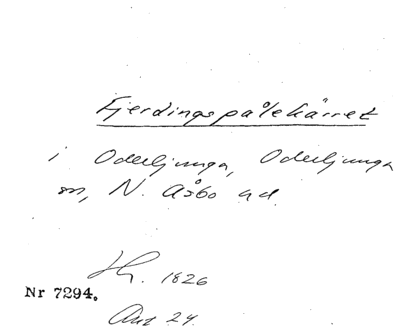 Fjerdingspålekärret
i Oderljunga, Oderljunga
sn, N. Åsbo hd.
1826
Nr 7294.